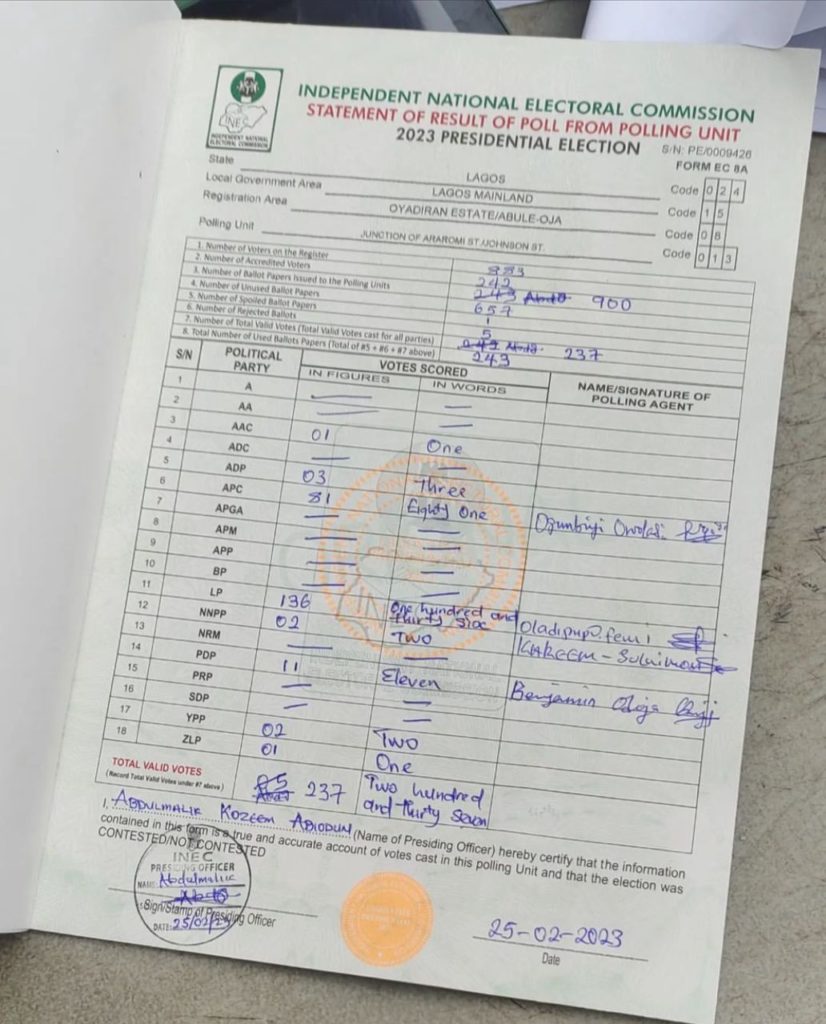 INEC
INDEPENDENT NATIONAL
ELECTORAL COMMISSION
INDEPENDENT NATIONAL ELECTORAL COMMISSION
STATEMENT OF RESULT OF POLL FROM POLLING UNIT
2023 PRESIDENTIAL ELECTION
S/N: PE/0009426
FORM EC 8A
State LAGOS Code 0 2 4
Local Government Area LAGOS MAINLAND Code 1 5
Registration Area OYADIRAN ESTATE/ABULE-OJA Code 0 8
Polling Unit JUNCTION OF ARAROMI ST/JOHNSON ST. Code 0 1 3
1. Number of Voters on the Register 883
2. Number of Accredited Voters 242
3. Number of Ballot Papers Issued to the Polling Units 243 900
4. Number of Unused Ballot Papers 657
5. Number of Spoiled Ballot Papers 1
6. Number of Rejected Ballots 5
7. Number of Total Valid Votes (Total Valid Votes cast for all parties) 242 237
8. Total Number of Used Ballots Papers (Total of #5 + #6 + #7 above) 243
S/N POLITICAL PARTY VOTES SCORED NAME/SIGNATURE OF POLLING AGENT
IN FIGURES IN WORDS
1 A — —
2 AA — —
3 AAC 01 One
4 ADC — —
5 ADP 03 Three
6 APC 81 Eighty One
7 APGA — —
8 APM — —
9 APP — —
10 BP — —
11 LP 136 One hundred and thirty six Oladipupo femi
12 NNPP 02 Two KAREEM - Sulaimon
13 NRM — —
14 PDP 11 Eleven Benjamin
15 PRP — —
16 SDP — —
17 YPP 02 Two
18 ZLP 01 One
TOTAL VALID VOTES 237 Two hundred and thirty seven
(Record Total Valid Votes under #7 above)
I, ABDULMALIK KOZEEM ABIODUN (Name of Presiding Officer) hereby certify that the information
contained in this form is a true and accurate account of votes cast in this polling Unit and that the election was
CONTESTED/NOT CONTESTED
INEC
PRESIDING OFFICER
NAME: Abdulmalik
Sign/Stamp of Presiding Officer
DATE: 25/02/23
25-02-2023
Date